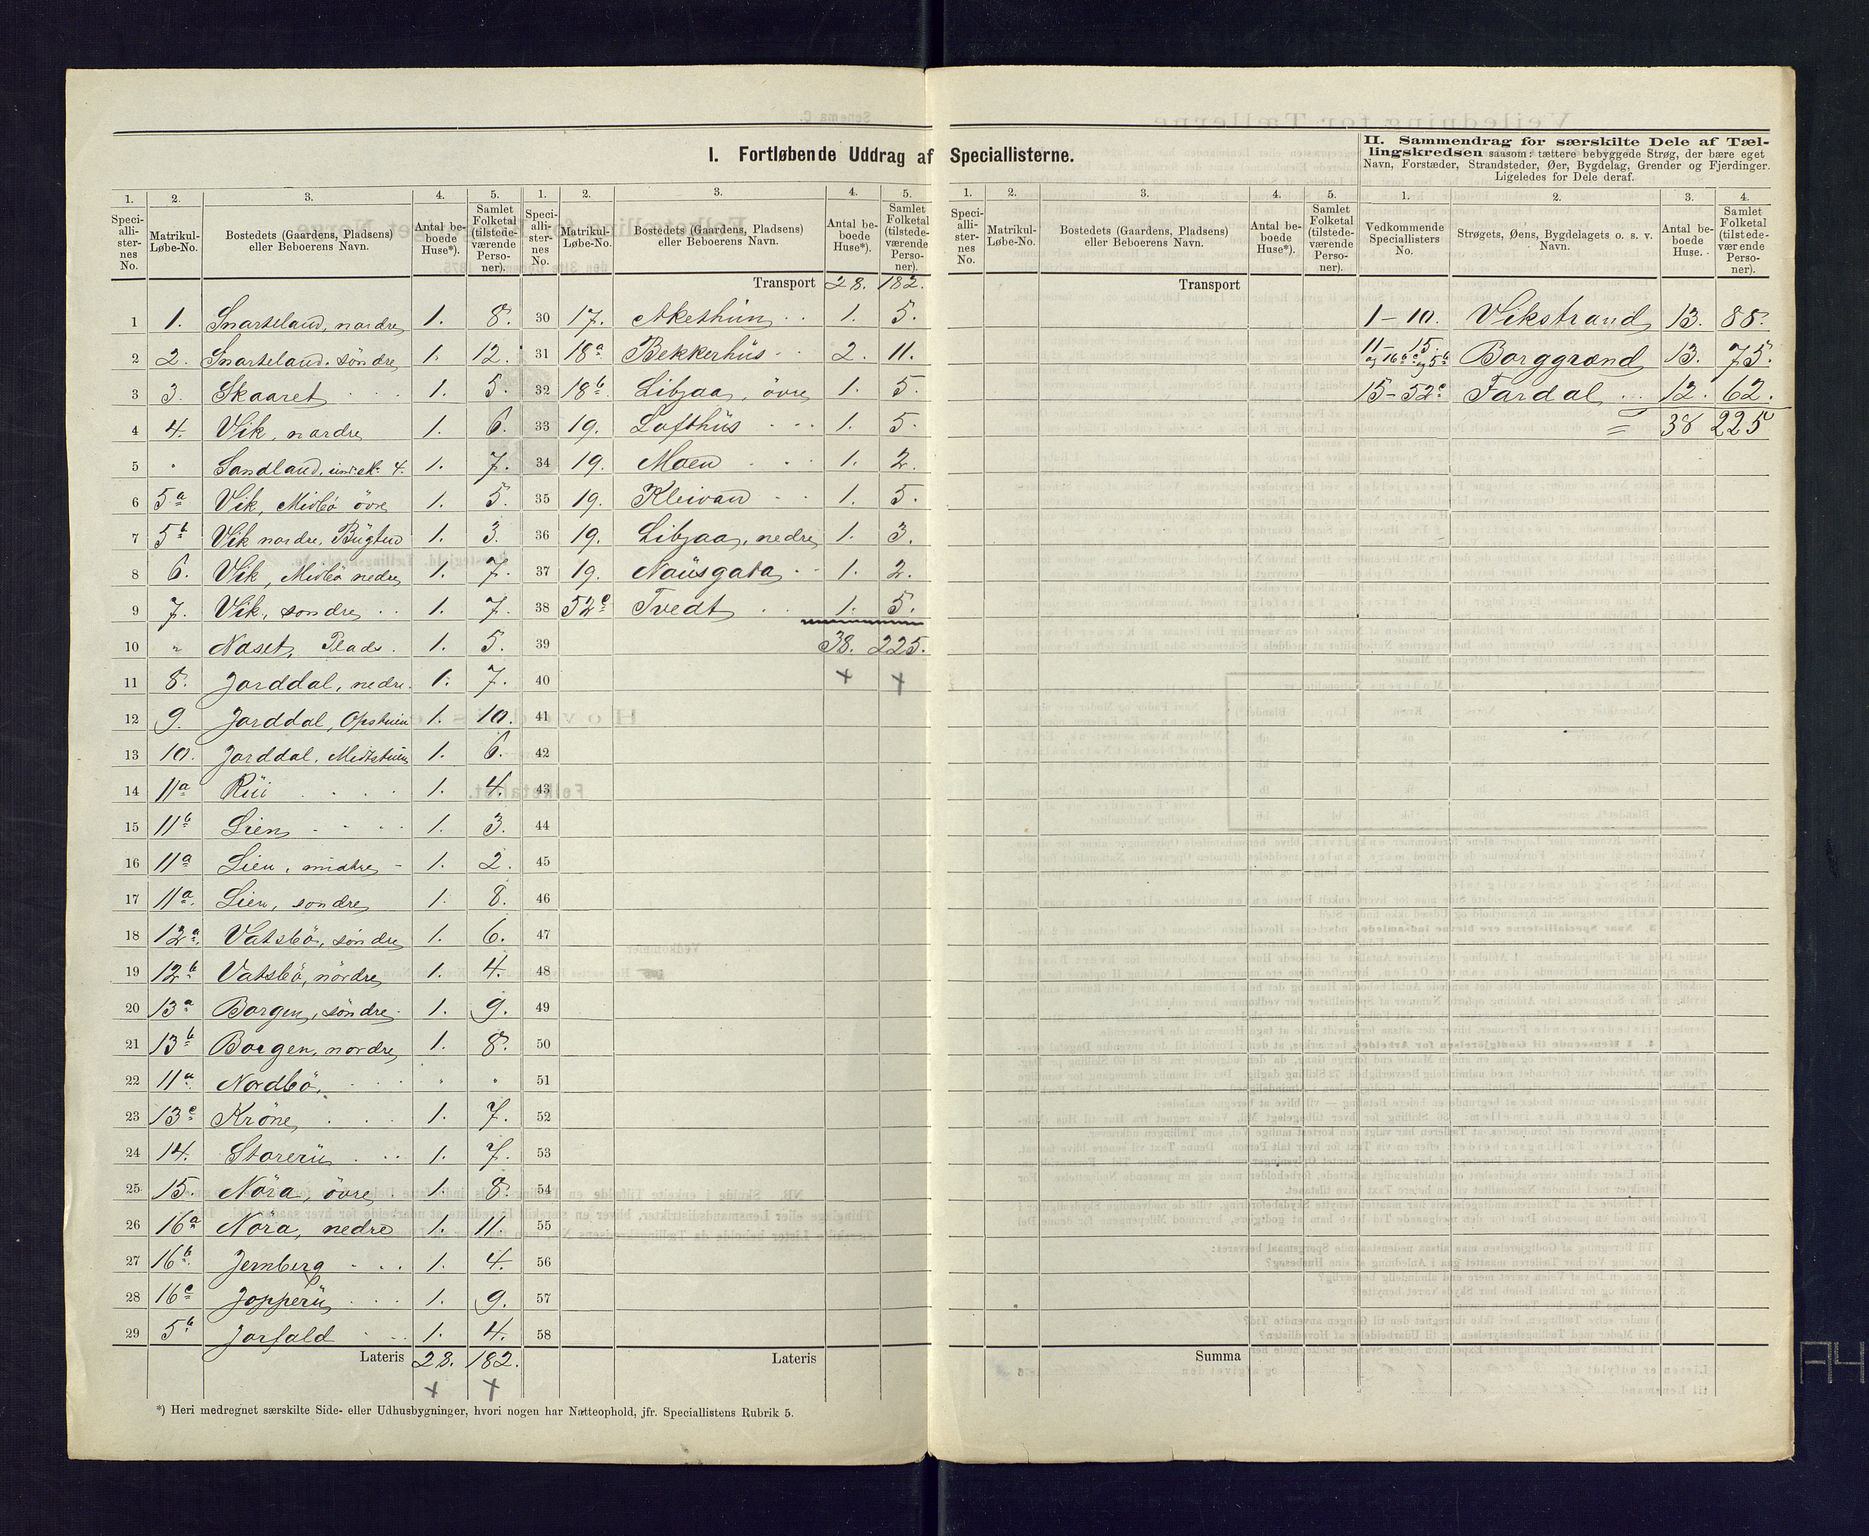 I. Fortløbende Uddrag af Speciallisterne.
II. Sammendrag for særskilte Dele af Tællingskredsen saasom: tættere bebyggede Strøg, der bære eget Navn, Forstæder, Strandsteder, Øer, Bygdelag, Grender og Fjerdinger. Ligeledes for Dele deraf.
1. 2. 3. 4. 5. 1. 2. 3. 4. 5. 1. 2. 3. 4. 5. 1. 2. 3. 4.
Speciallisternes No. Matrikul-Løbe-No. Bostedets (Gaardens, Pladsens) eller Beboerens Navn. Antal beboede Huse*). Samlet Folketal (tilstedeværende Personer).
Speciallisternes No. Matrikul-Løbe-No. Bostedets (Gaardens, Pladsens) eller Beboerens Navn. Antal beboede Huse*). Samlet Folketal (tilstedeværende Personer).
Speciallisternes No. Matrikul-Løbe-No. Bostedets (Gaardens, Pladsens) eller Beboerens Navn. Antal beboede Huse*). Samlet Folketal (tilstedeværende Personer).
Vedkommende Speciallisters No. Strøgets, Øens, Bygdelagets o. s. v. Navn. Antal beboede Huse. Samlet Folketal (tilstedeværende Personer).
1 1. Snarteland, nordre 1. 8.
2 2. Snarteland, söndre 1. 12.
3 3. Skaaret 1. 5.
4 4. Vik, nordre 1. 6.
5 " Sandland, 4. 1. 7.
6 5a Vik, Midbö övre 1. 5.
7 5b Vik nordre, 1. 3.
8 6. Vik, Midbö nedre 1. 7.
9 7. Vik, söndre 1. 7.
10 " Næset, Plads. 1. 5.
11 8. Jorddal, nedre. 1. 7.
12 9. Jorddal, Opstuen 1. 10.
13 10. Jorddal, Midtstuen 1. 6.
14 11a Rüi 1. 4.
15 11b Lien 1. 3.
16 11a Lien, midtre 1. 2.
17 11a. Lien, söndre 1. 8.
18 12a. Vatsbö, söndre 1. 6.
19 12b Vatsbö, nordre 1. 4.
20 13a Borgen, söndre 1. 9.
21 13b Borgen, nordre 1. 8.
22 11a Nordbö, " "
23 13c Kröne 1. 7.
24 14. Storerü 1. 7.
25 15. Nöra, övre 1. 8.
26 16a Nöra, nedre 1. 11.
27 16b. Jernberg 1. 4.
28 16c Jopperü 1. 9.
29 5b Jorfald 1. 4.
Lateris 28. 182.
+ +
Transport 28. 182.
30 17. Akethün 1. 5.
31 18a Bekkerhüs 2. 11.
32 18b. Libjaa, övre 1. 5.
33 19. Lofthüs 1. 5.
34 19. Moen 1. 2.
35 19. Kleivan 1. 5.
36 19. Libjaa, nedre 1. 3.
37 19. Naüsgata 1. 2.
38 52c Tvedt 1. 5.
39 38. 225.
40 + +
41
42
43
44
45
46
47
48
49
50
51
52
53
54
55
56
57
58
Lateris
Transport
Summa
1-10. Vikstrand 13. 88.
11-15. og 16 a og 5b Borggrænd 13. 75.
15-52c Fardal 12. 62.
= 38 225
*) Heri medregnet særskilte Side- eller Udhusbygninger, hvori nogen har Natteophold, jfr. Speciallistens Rubrik 5.
A4